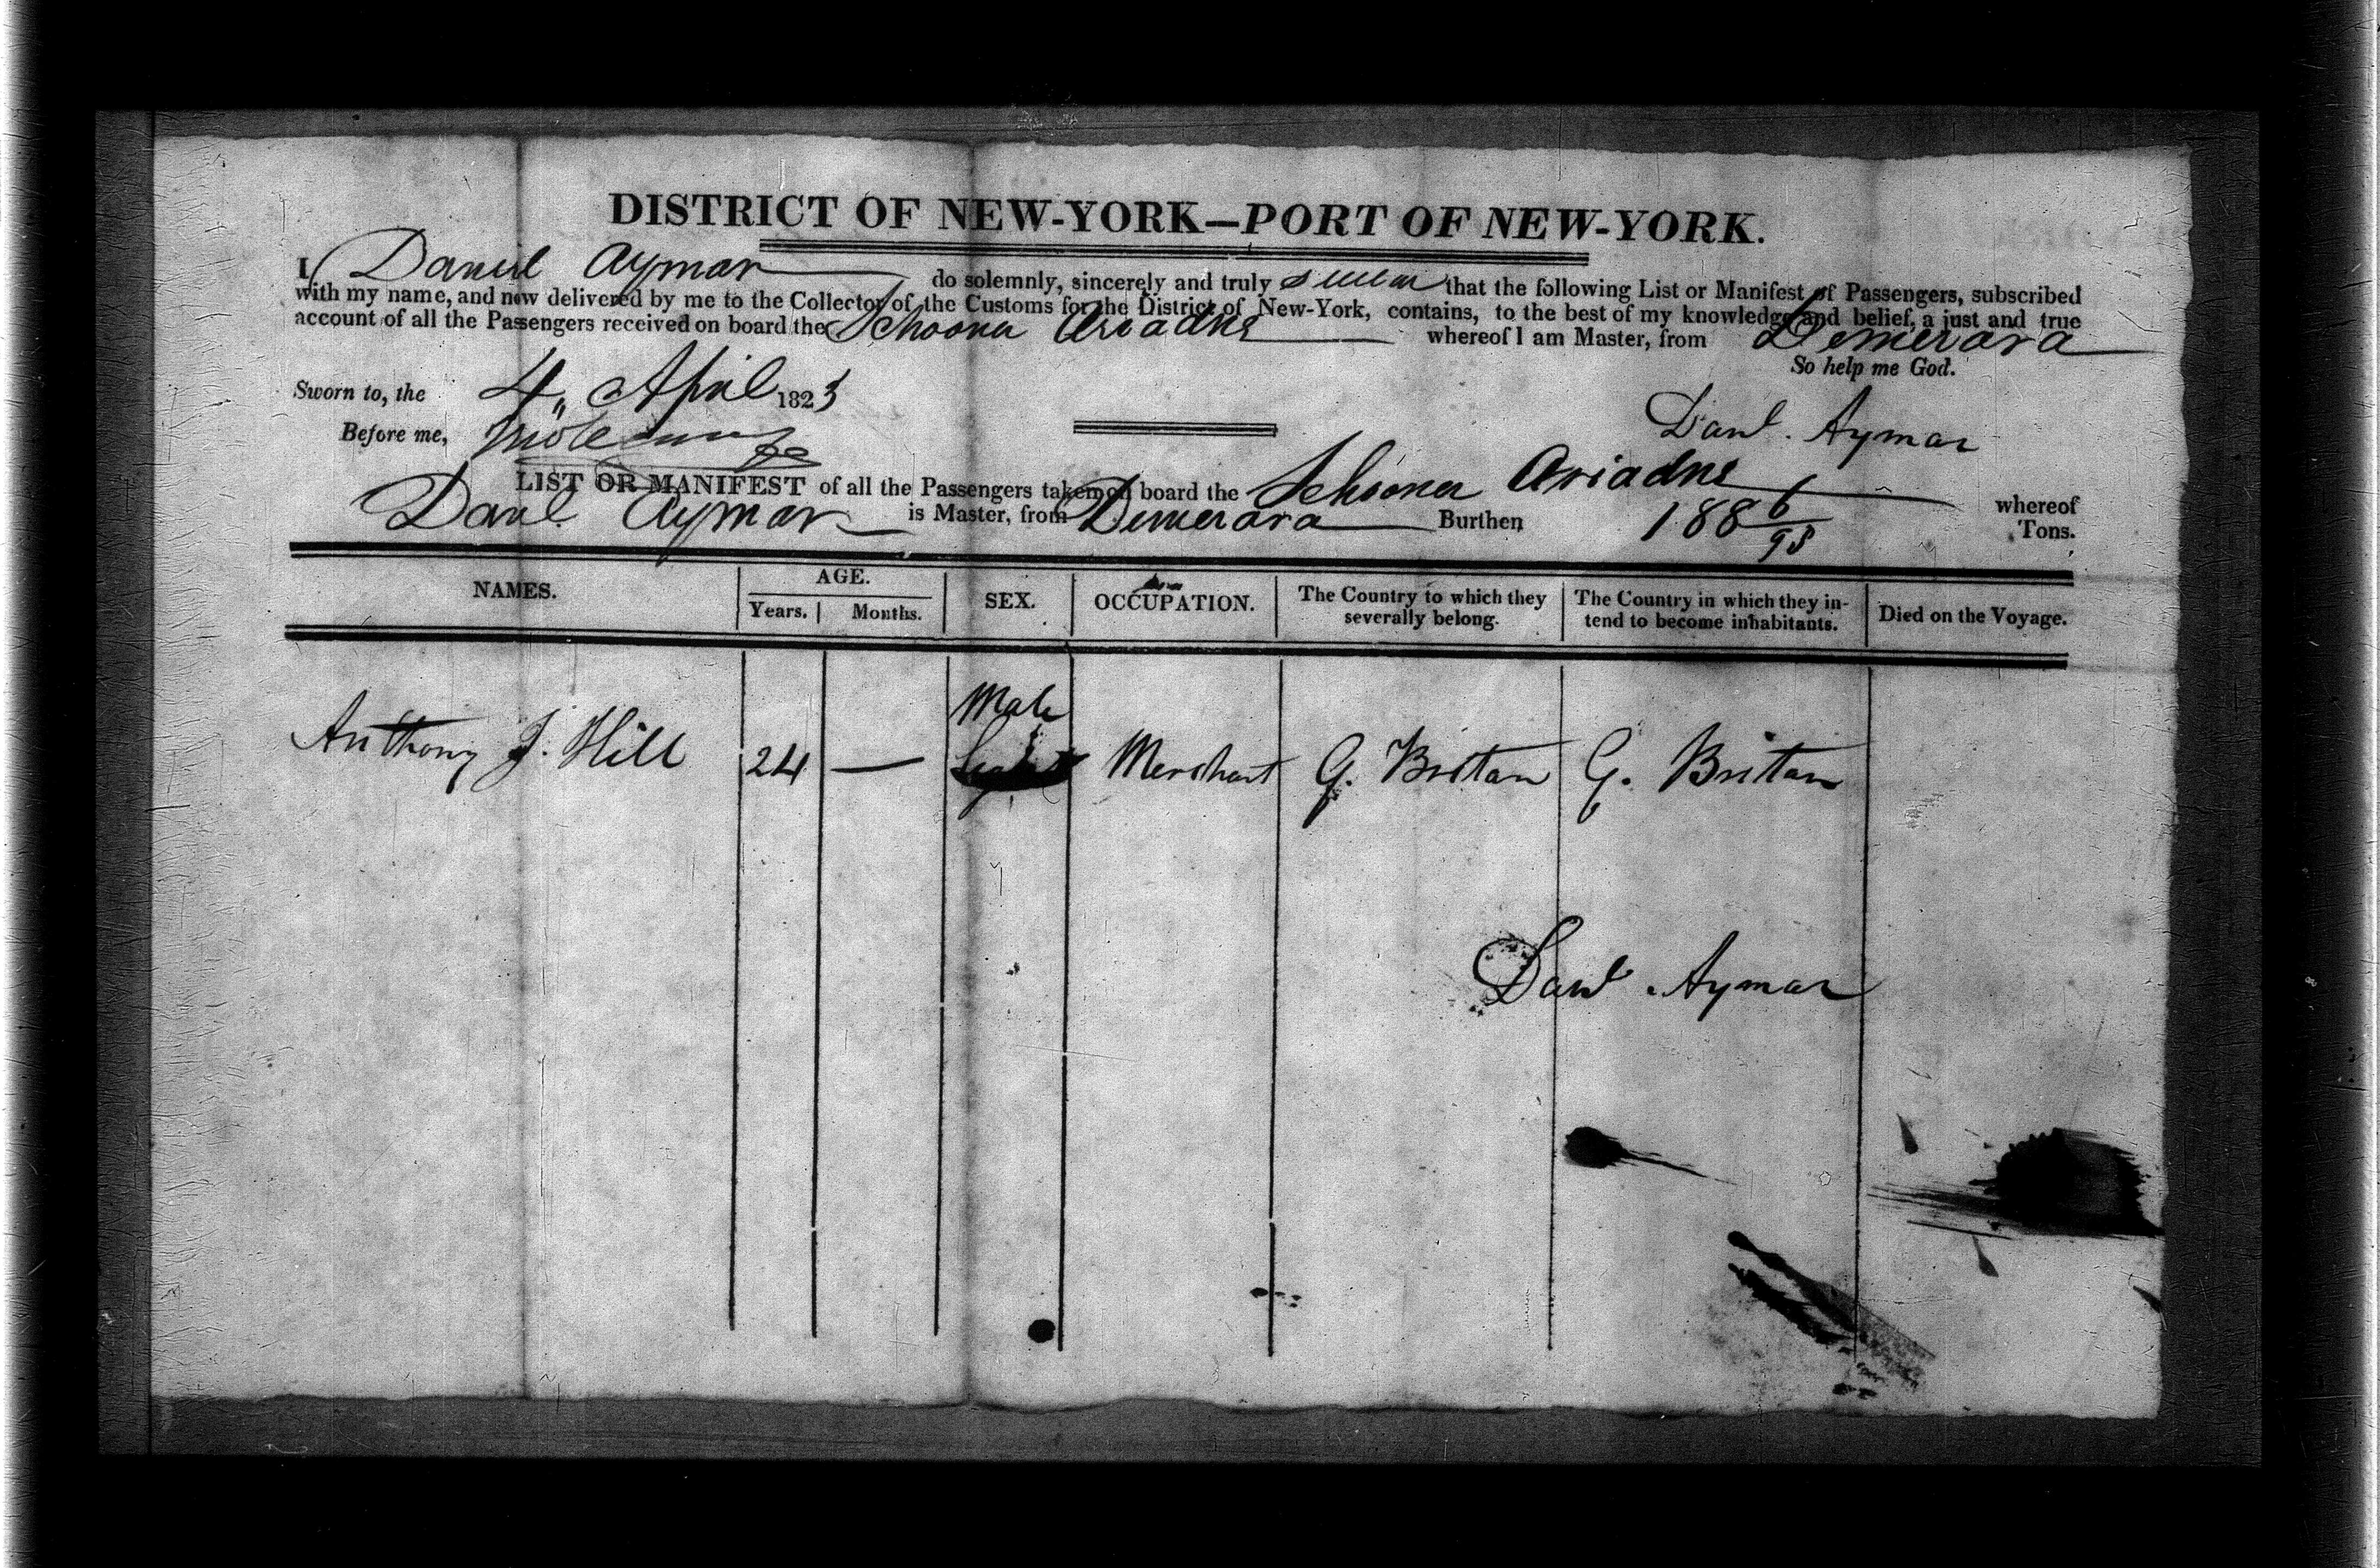 DISTRICT OF NEW-YORK—PORT OF NEW-YORK.
I, Daniel Aymar do solemnly, sincerely and truly swear that the following List or Manifest of Passengers, subscribed
with my name, and now delivered by me to the Collector of the Customs for the District of New-York, contains, to the best of my knowledge and belief, a just and true
account of all the Passengers received on board the Schooner Ariadne whereof I am Master, from Demerara
So help me God.
Sworn to, the 4 April 1823
Before me,
Danl. Aymar
LIST OR MANIFEST of all the Passengers taken on board the Schooner Ariadne whereof
Danl Aymar is Master, from Demerara Burthen 188 6/95 Tons.
NAMES. AGE. SEX. OCCUPATION. The Country to which they severally belong. The Country in which they intend to become inhabitants. Died on the Voyage.
Years. Months.
Male
Anthony J. Hill 24 — Merchant G. Britan G. Britan
Danl. Aymar